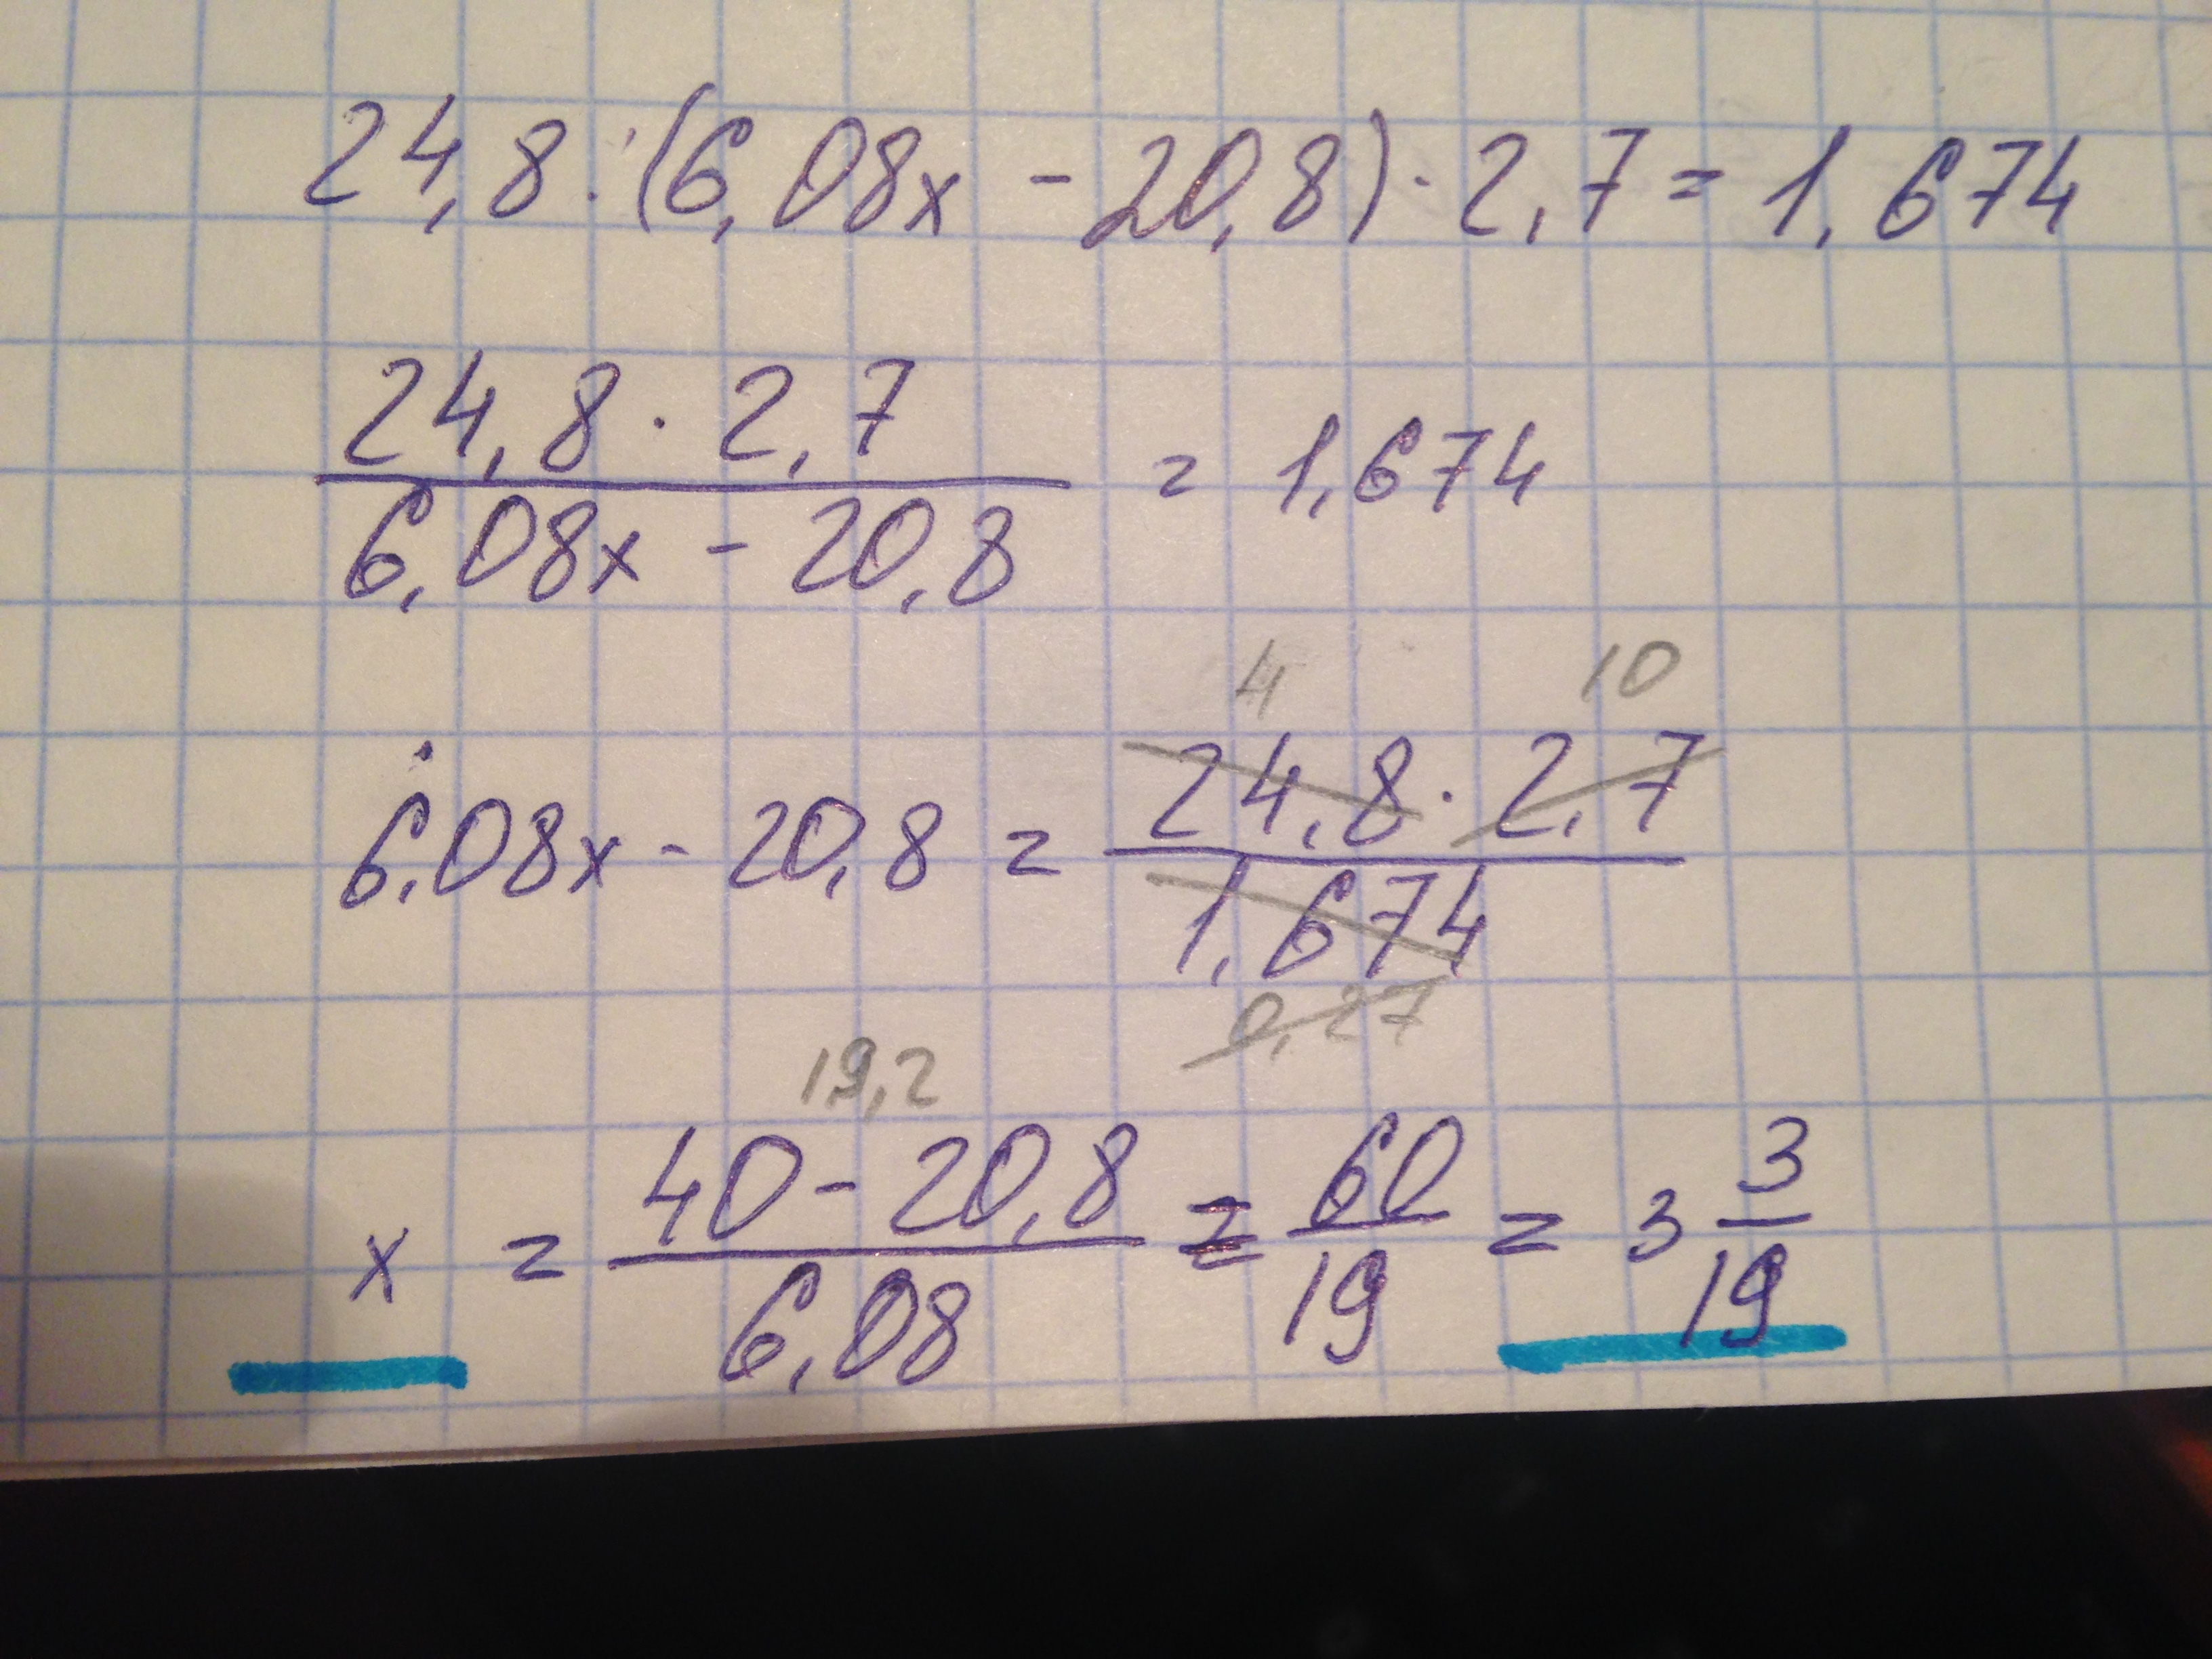 24,8:(6,08x - 20,8)·2,7 = 1,674
24,8 · 2,7
6,08x - 20,8
= 1,674
4 10
24,8 · 2,7
6,08x - 20,8 =
1,674
0,27
19,2
40 - 20,8
6,08
x =
= 60/19 = 3 3/19